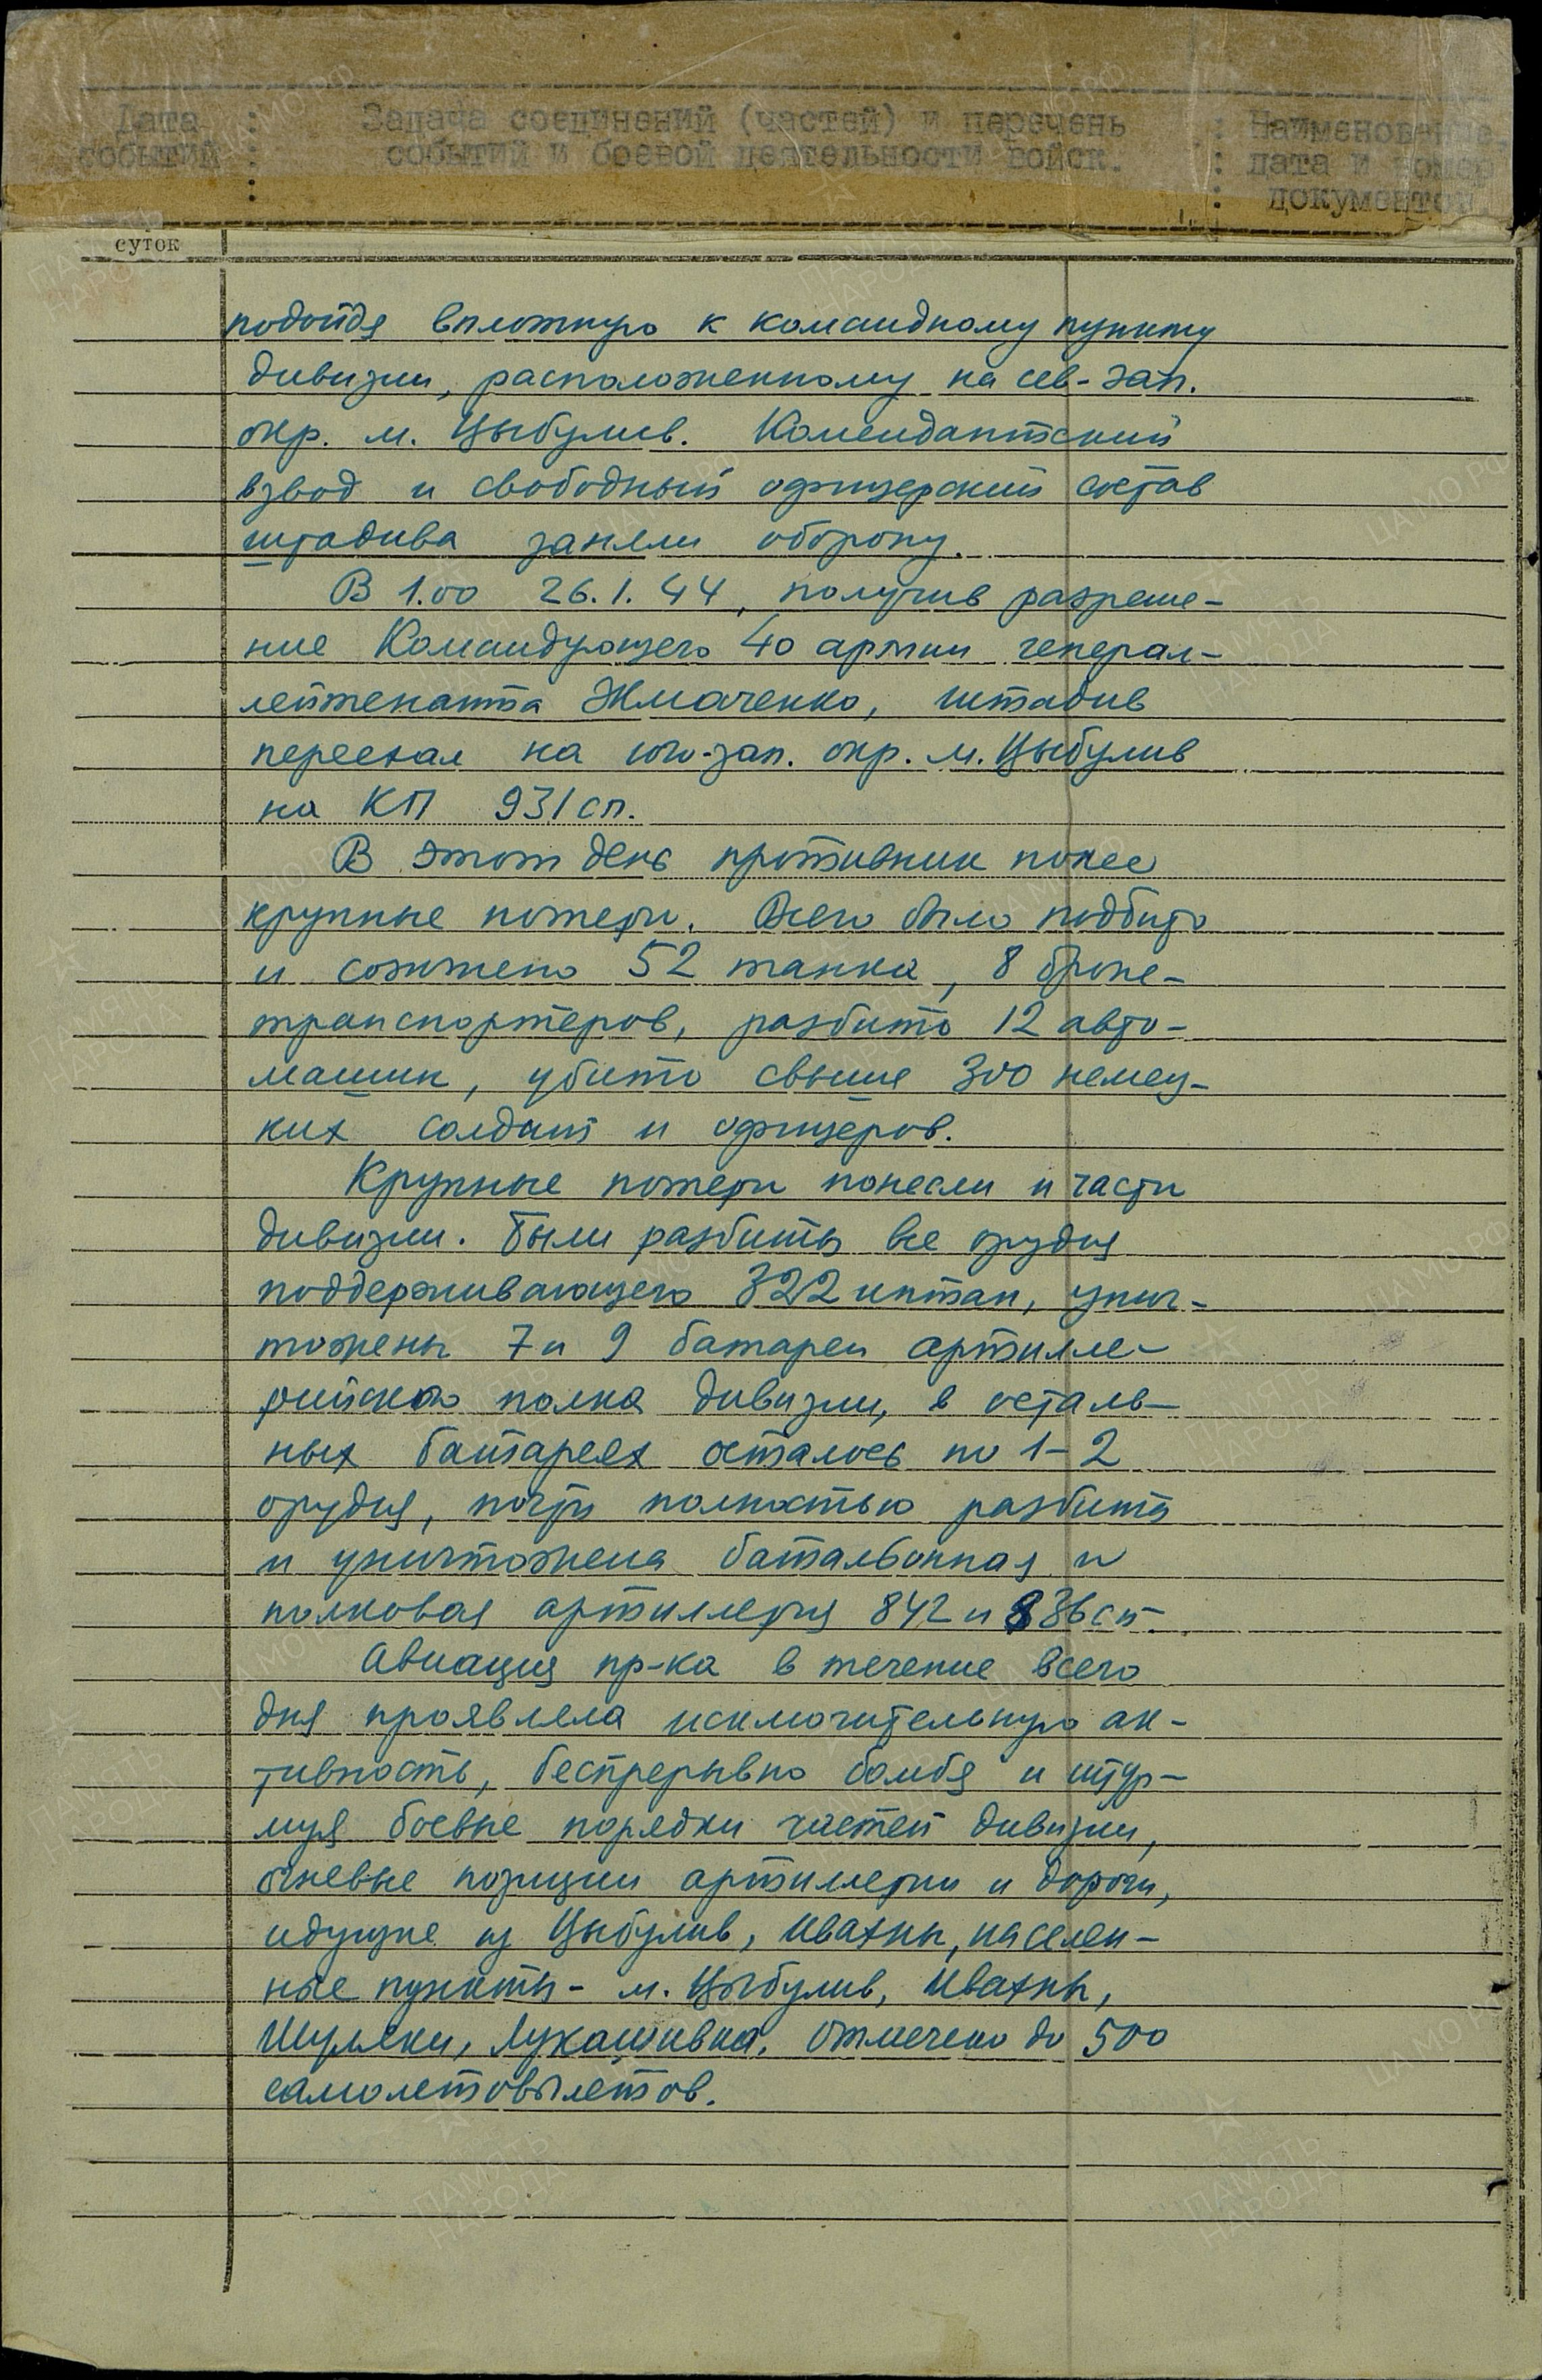 Дата : Задача соединений (частей) и перечень : Наименование,
событий : событий и боевой деятельности войск. : дата и номер
: : документов
суток
подойдя вплотную к командному пункту
дивизии, расположенному на сев-зап.
окр. м. Цыбулив. Комендантский
взвод и свободный офицерский состав
штадива заняли оборону.
В 1.00 26.1.44, получив разреше-
ние Командующего 40 армии генерал-
лейтенанта Жмаченко, штадив
переехал на юго-зап. окр. м. Цыбулив
на КП 931 сп.
В этот день противник понес
крупные потери. Всего было подбито
и сожжено 52 танка, 8 броне-
транспортеров, разбито 12 авто-
машин, убито свыше 300 немец-
ких солдат и офицеров.
Крупные потери понесли и части
дивизии. Были разбиты все орудия
поддерживающего 322 иптап, унич-
тожены 7 и 9 батареи артилле-
рийского полка дивизии, в осталь-
ных батареях осталось по 1-2
орудия, почти полностью разбита
и уничтожена батальонная и
полковая артиллерия 842 и 836 сп.
Авиация пр-ка в течение всего
дня проявляла исключительную ак-
тивность, беспрерывно бомбя и штур-
муя боевые порядки частей дивизии,
огневые позиции артиллерии и дороги,
идущие из Цыбулив, Ивахны, населен-
ные пункты - м. Цыбулив, Ивахны,
Шуляки, Лукашивка. Отмечено до 500
самолетовылетов.